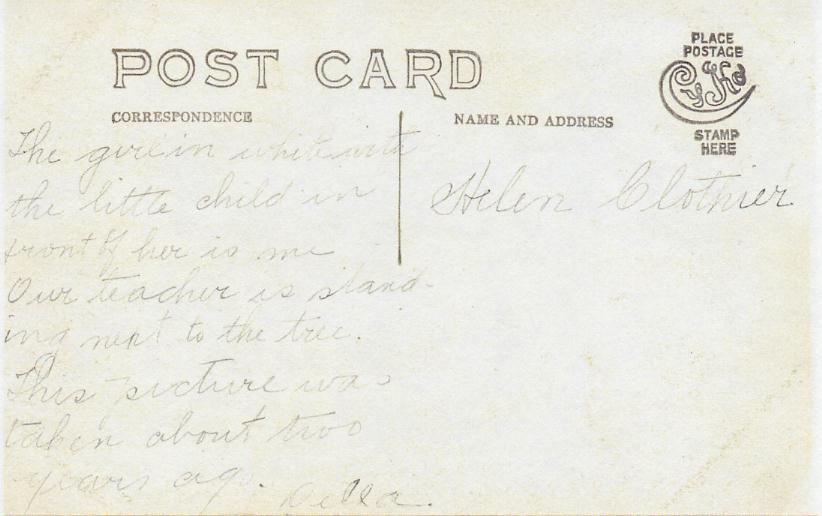 PLACE
POSTAGE
CyKo
STAMP
HERE
POST CARD
CORRESPONDENCE
NAME AND ADDRESS
The girl in white with
the little child in
front of her is me
Our teacher is stand-
ing next to the tree.
This picture was
taken about two
years ago.
Della.
Helen Clothier